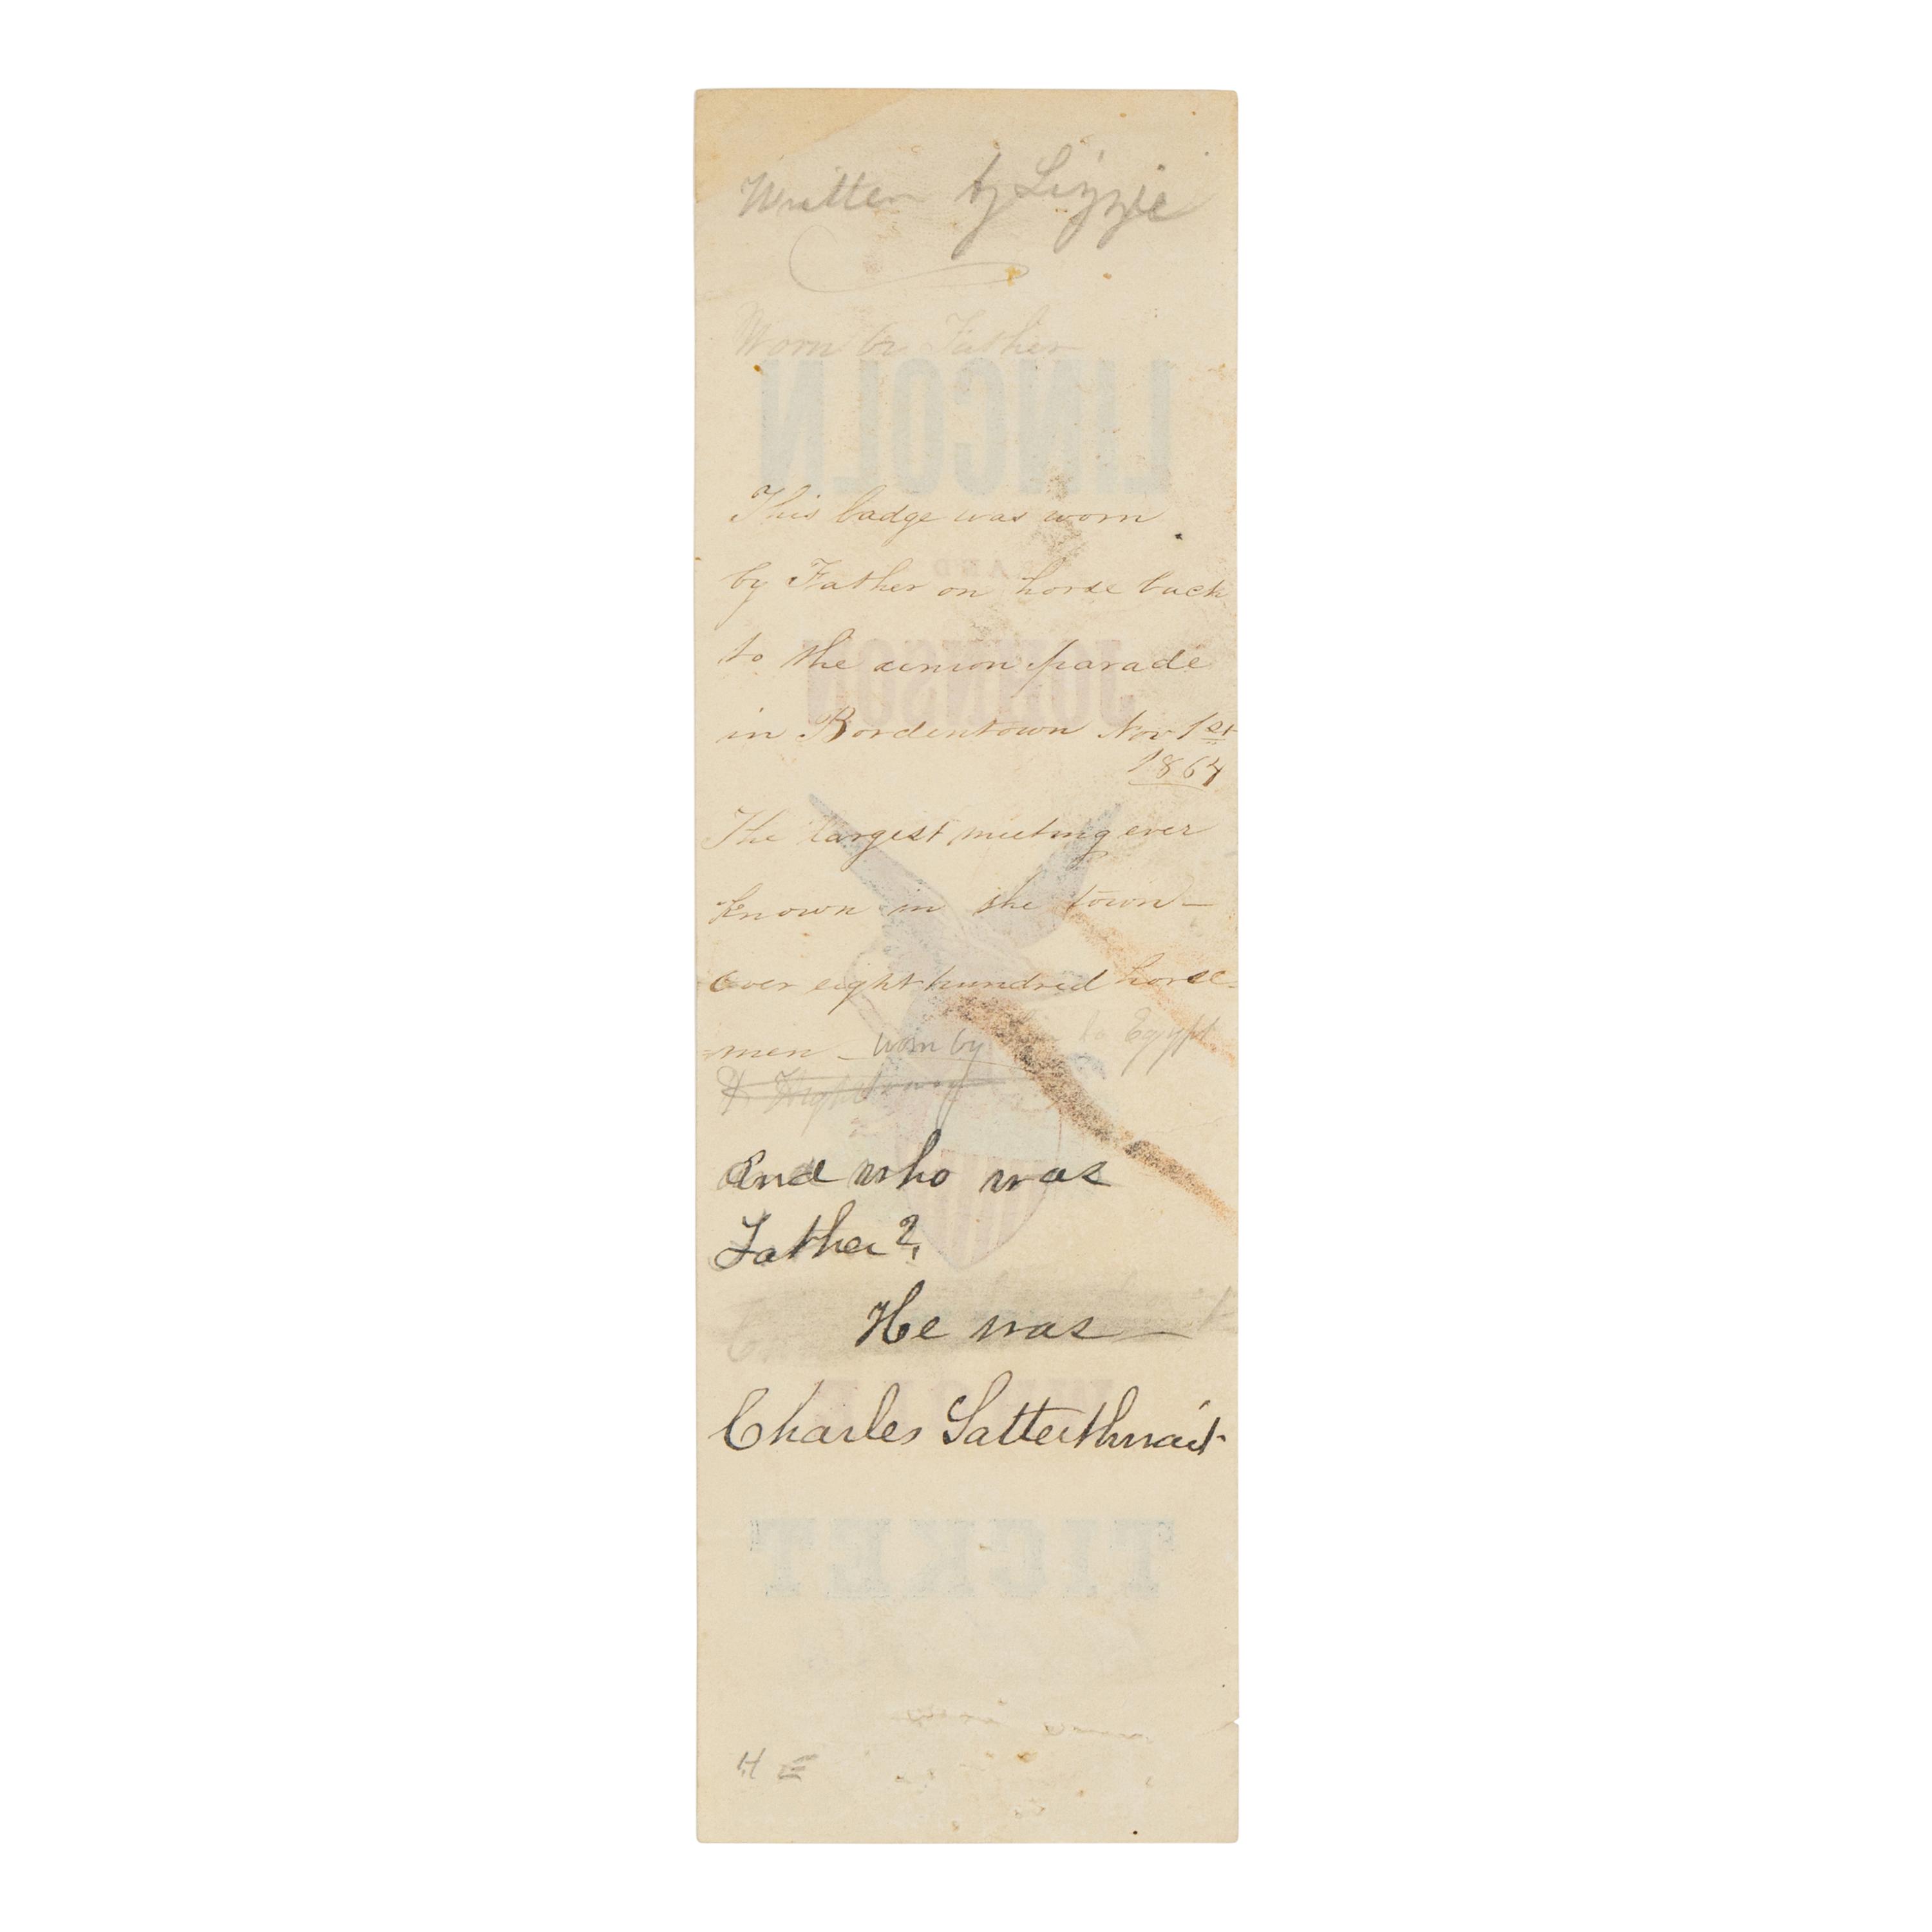 Written by Lizzie
Worn by Father
LINCOLN
This badge was worn
AND
by Father on horse back
to the union parade
JOHNSON
in Bordentown Nov 1st
1864
The largest meeting ever
known in the town —
Over eight hundred horse=
=men — worn by to Egypt
And who was
Father?
He was —
Charles Satterthwait
TICKET
H E